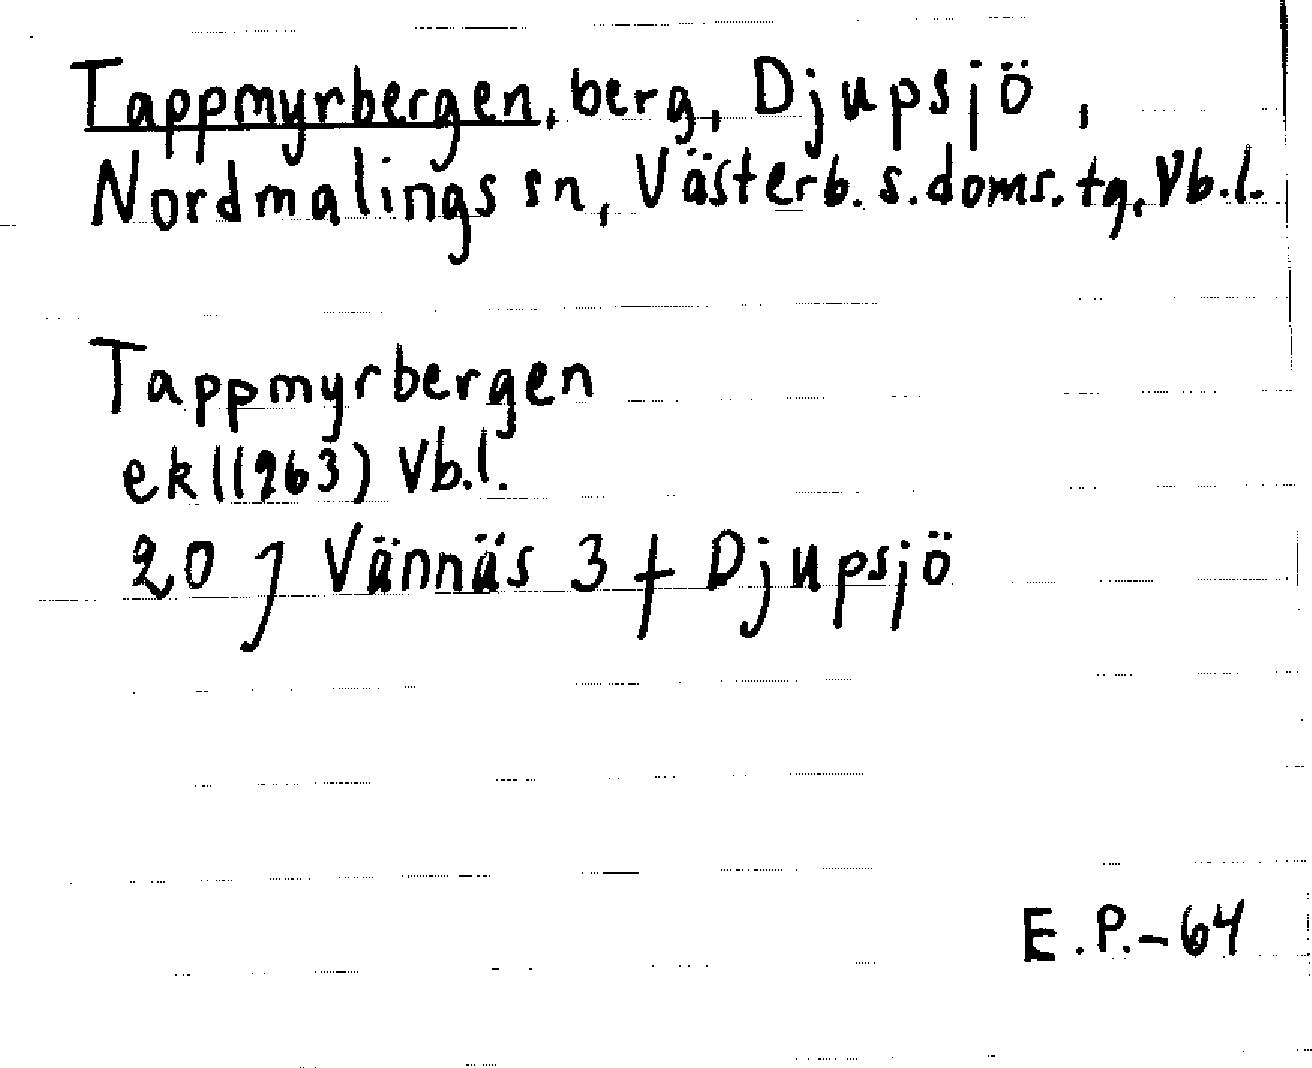 Tappmyrbergen, berg, Djupsjö,
Nordmalings sn, Västerb. s. doms. tg, Vb.l.
Tappmyrbergen
ek (1963) Vb.l.
20 J Vännäs 3 f Djupsjö
E.P.-64